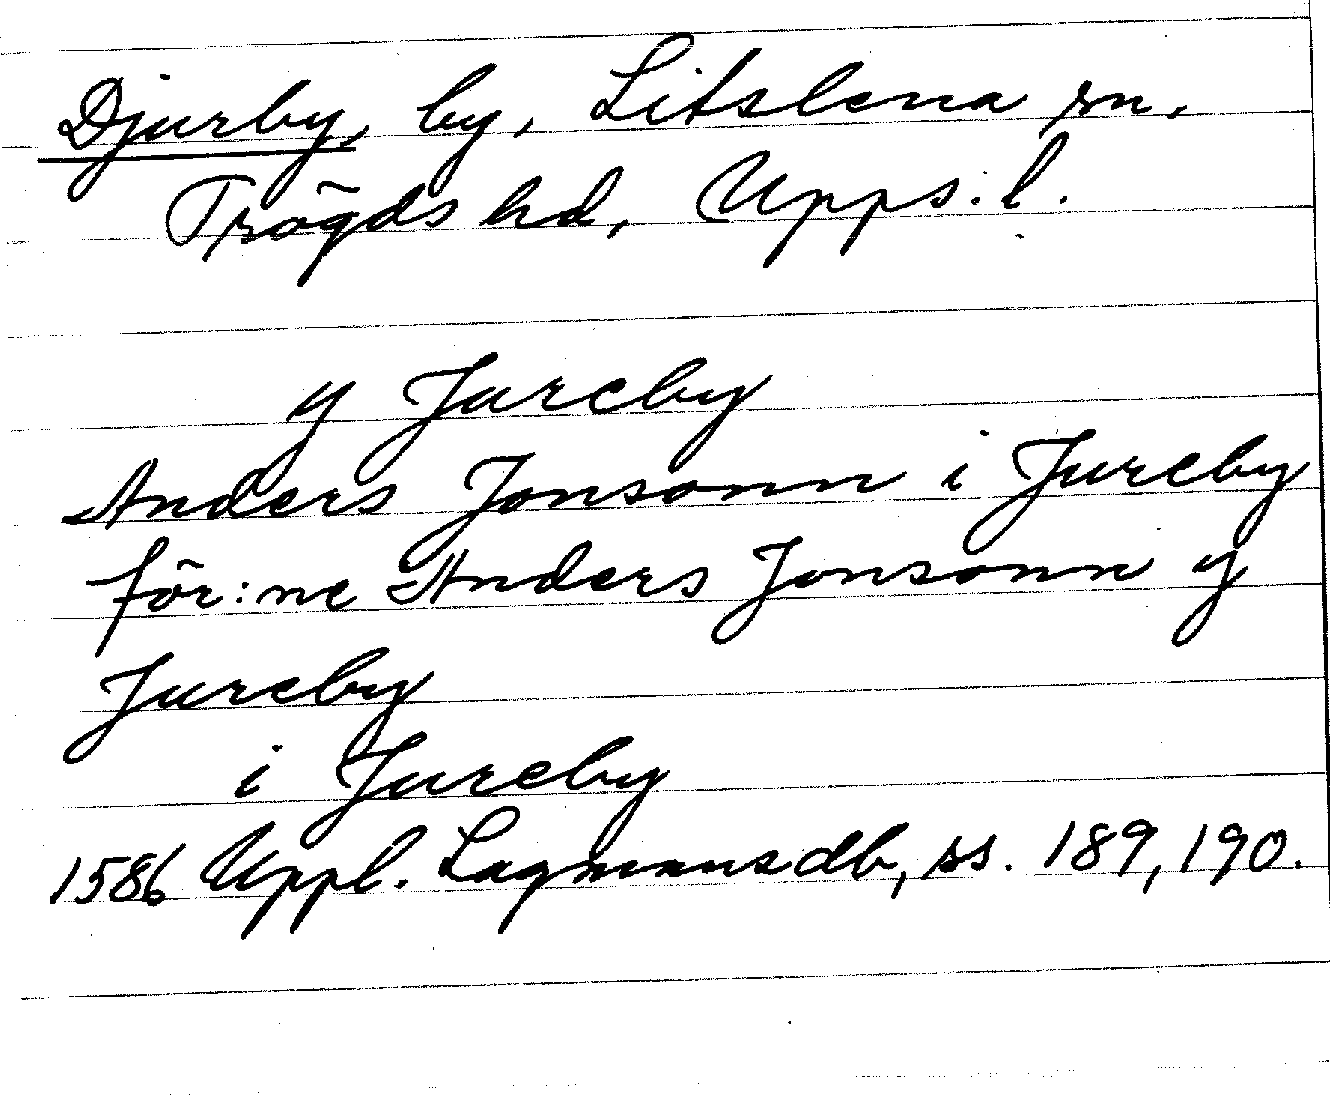 Djurby, by, Litslena sn,
Trögds hd, Upps. l.
y Jureby
Anders Jonsonn i Jureby
för:ne Anders Jonsonn y
Jureby
i Jureby
1586 Uppl. Lagmansdb, ss. 189, 190.